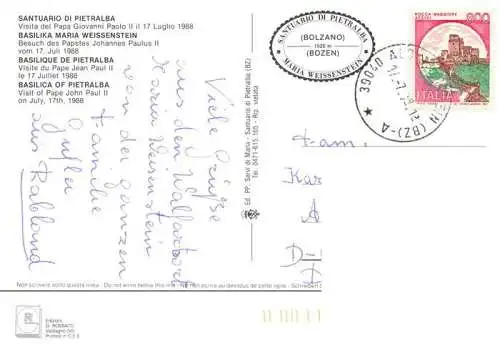 SANTUARIO DI PIETRALBA
Visita del Papa Giovanni Paolo II il 17 Luglio 1988
BASILIKA MARIA WEISSENSTEIN
Besuch des Papstes Johannes Paulus II
von 17. Juli 1988
BASILIQUE DE PIETRALBA
Visite du Pape Jean Paul II
le 17 Juillet 1988
BASILICA OF PIETRALBA
Visit of Pope John Paul II
on July, 17th, 1988
Viele Grüße
aus dem Wallfahrtsort
Maria Weissenstein
von der ganzen
Familie
aus Rabland
Ed. PP. Servi di Maria - Santuario di Pietralba (BZ)
Tel. 0471-615.165 - Rip. vietata
SANTUARIO DI PIETRALBA
(BOLZANO)
1520 m
(BOZEN)
MARIA WEISSENSTEIN
39050
(BZ)-A
ROCCA MAGGIORE
ASSISI
800
ITALIA
Fam.
Kar
A
D-
Non scrivere sotto questa linea - Do not write below this line - Ne rien écrire au-dessous de cette ligne - Schreiben